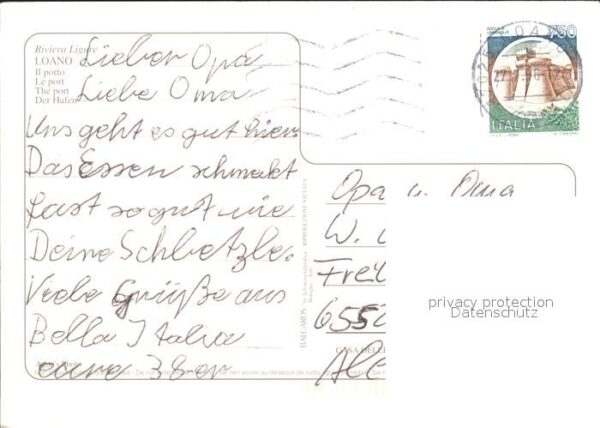 Riviera Ligure
LOANO
Il porto
Le port
The port
Der Hafen
Lieber Opa
Liebe Oma
Uns geht es gut hier
Das Essen schmekt
fast so gut wie
Deine Schbetzle.
Viele Grüße aus
Bella Italia
eure 3
750
ITALIA
Opa u. Oma
W.
Frei
6552
privacy protection
Datenschutz
ITALCARDS